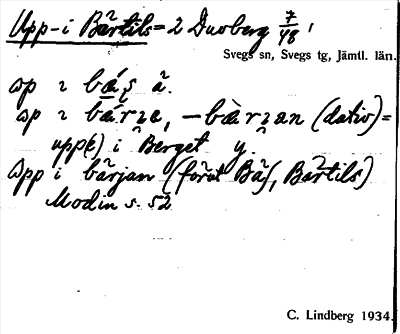 Upp-i Bärtils = 2 Duoberg 7/48
Svegs sn, Svegs tg, Jämtl. län.
åp ı bǽʂ ä̃.
åp ı bǽrʒe, -bærʒan (dativ)=
upp(e) i Berget y.
Opp i bärjan (förut Bäʃ, Bärtils)
Modin s. 52
C. Lindberg 1934.